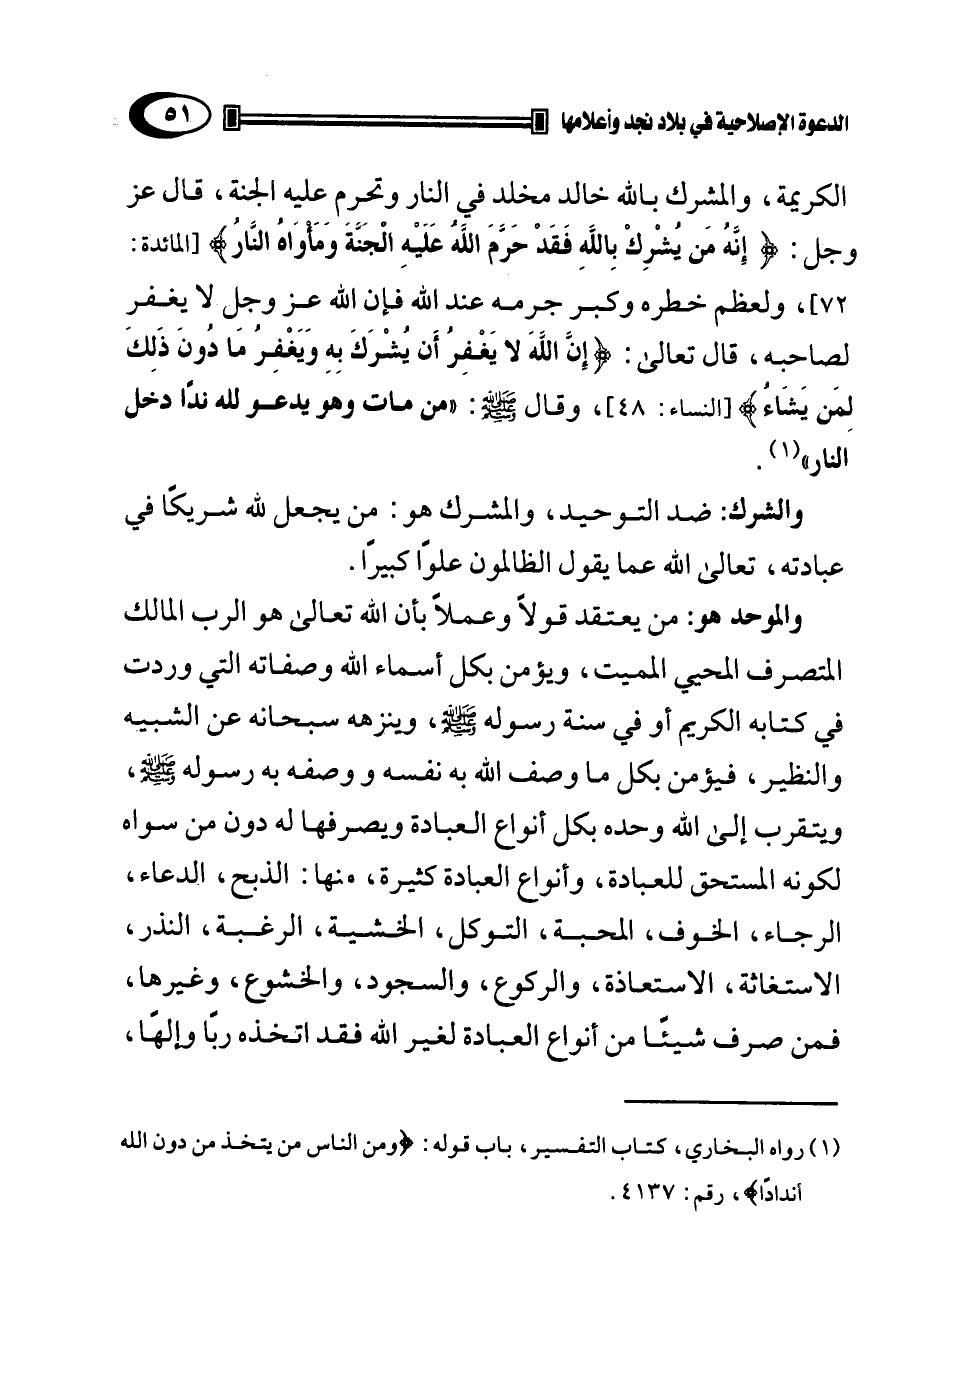 الدعوة الإصلاحية في بلاد نجد وأعلامها ٥١
الكريمة، والمشرك بالله خالد مخلد في النار وتحرم عليه الجنة، قال عز
وجل: ﴿ إِنَّهُ مَن يُشْرِكْ بِاللَّهِ فَقَدْ حَرَّمَ اللَّهُ عَلَيْهِ الْجَنَّةَ وَمَأْوَاهُ النَّارُ﴾ [المائدة:
٧٢]، ولعظم خطره وكبر جرمه عند الله فإن الله عز وجل لا يغفر
لصاحبه، قال تعالىٰ: ﴿إِنَّ اللَّهَ لا يَغْفِرُ أَن يُشْرَكَ بِهِ وَيَغْفِرُ مَا دُونَ ذَلِكَ
لِمَن يَشَاءُ﴾ [النساء: ٤٨]، وقال ﷺ: «من مات وهو يدعو لله ندًا دخل
النار»(١).
والشرك: ضد التوحيد، والمشرك هو: من يجعل لله شريكًا في
عبادته، تعالىٰ الله عما يقول الظالمون علوًا كبيرًا.
والموحد هو: من يعتقد قولاً وعملاً بأن الله تعالىٰ هو الرب المالك
المتصرف المحيي المميت، ويؤمن بكل أسماء الله وصفاته التي وردت
في كتابه الكريم أو في سنة رسوله ﷺ، وينزهه سبحانه عن الشبيه
والنظير، فيؤمن بكل ما وصف الله به نفسه و وصفه به رسوله ﷺ،
ويتقرب إلىٰ الله وحده بكل أنواع العبادة ويصرفها له دون من سواه
لكونه المستحق للعبادة، وأنواع العبادة كثيرة، منها: الذبح، الدعاء،
الرجاء، الخوف، المحبة، التوكل، الخشية، الرغبة، النذر،
الاستغاثة، الاستعاذة، والركوع، والسجود، والخشوع، وغيرها،
فمن صرف شيئًا من أنواع العبادة لغير الله فقد اتخذه ربًا وإلهًا،
(١) رواه البخاري، كتاب التفسير، باب قوله: ﴿ومن الناس من يتخذ من دون الله
أندادًا﴾، رقم: ٤١٣٧.